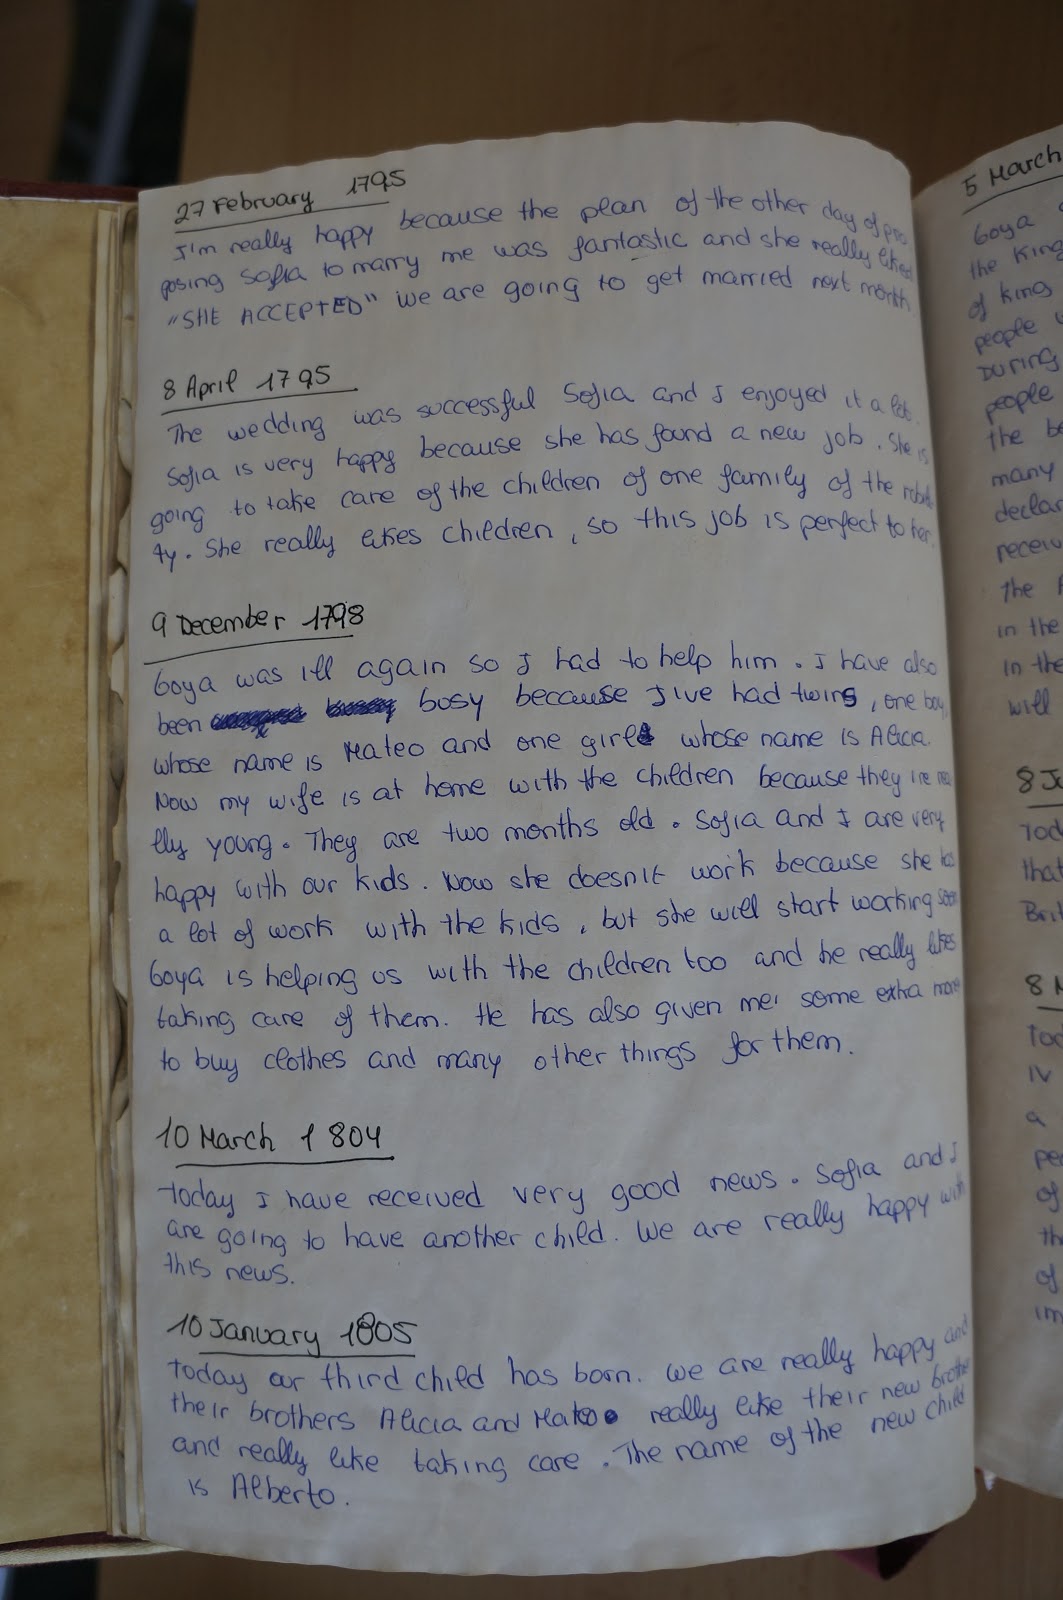 27 February 1795
I'm really happy because the plan of the other day of pro
posing Sofia to marry me was fantastic and she really liked
"SHE ACCEPTED" we are going to get married next month
8 April 1795
The wedding was successful Sofia and I enjoyed it a lot.
Sofia is very happy because she has found a new job. She is
going to take care of the children of one family of the
ty. She really likes children, so this job is perfect to her.
9 December 1798
Goya was ill again so I had to help him. I have also
been busy because I've had twins, one boy
whose name is Mateo and one girl whose name is Alicia.
Now my wife is at home with the children because they're rea
lly young. They are two months old. Sofia and I are very
happy with our kids. Now she doesn't work because she has
a lot of work with the kids, but she will start working soon
Goya is helping us with the children too and he really likes
taking care of them. He has also given me some extra money
to buy clothes and many other things for them.
10 March 1804
Today I have received very good news. Sofia and I
are going to have another child. We are really happy with
this news.
10 January 1805
Today our third child has born. We are really happy and
their brothers Alicia and Mateo really like their new brother
and really like taking care. The name of the new child
is Alberto.
5 March
Goya
the King
of King
people
During
people
the be
many
declar
receiv
the
in the
in the
will
8 J
Tod
that
Brit
8 M
Tod
IV
a
pe
of
th
of
im